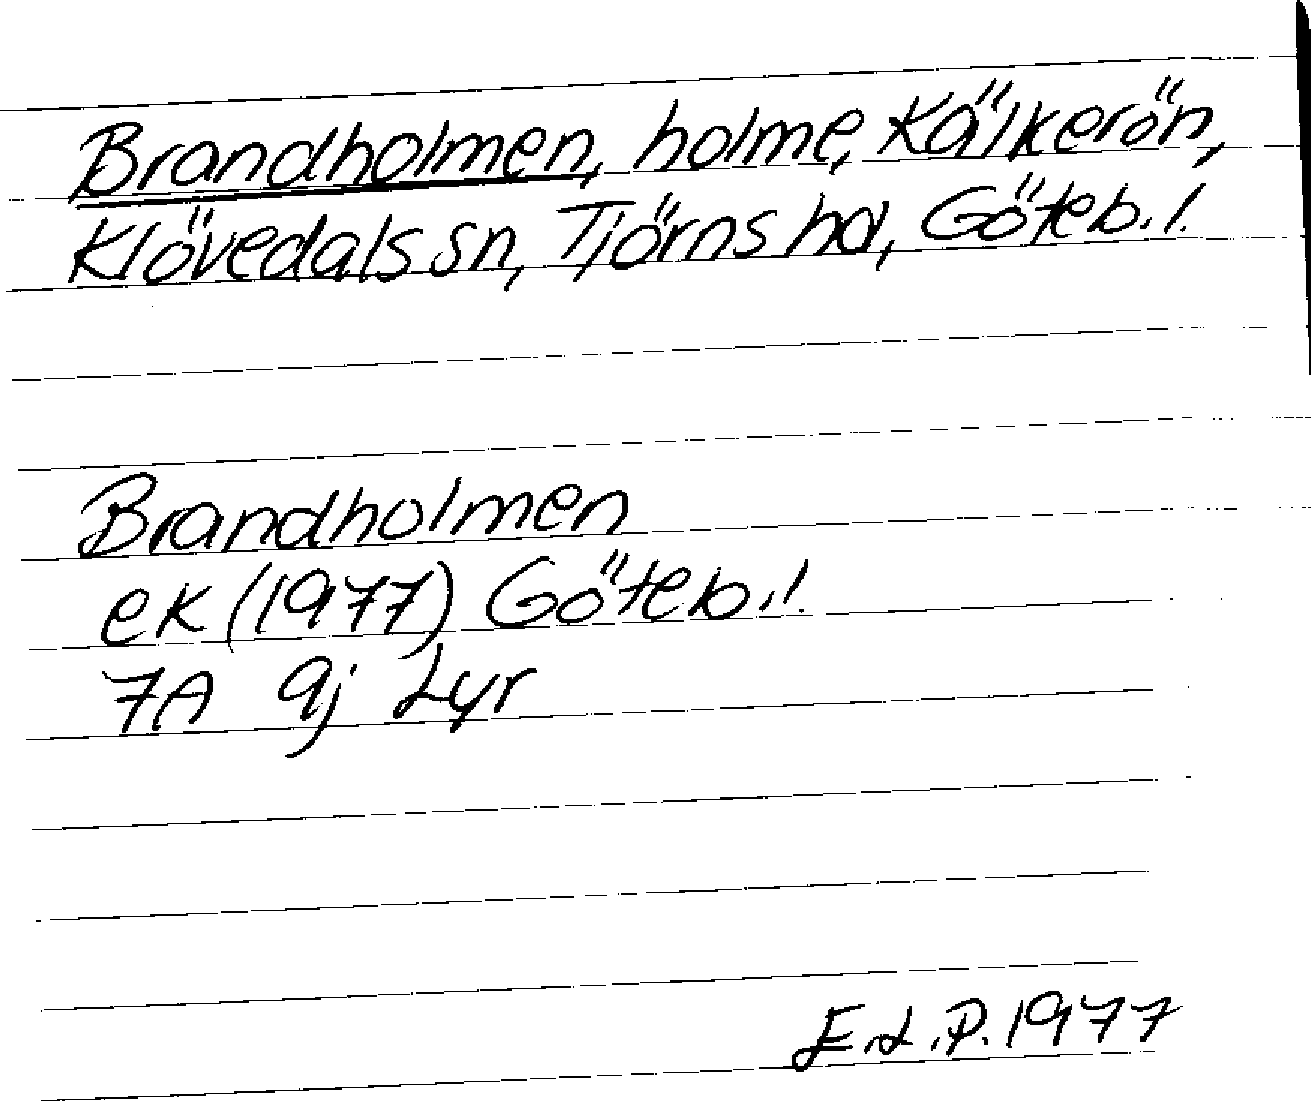 Brandholmen, holme, Kälkerön,
Klövedals sn, Tjörns hd, Göteb. l.
Brandholmen
ek (1977) Göteb. l.
7A 9j Lyr
E.L.P. 1977